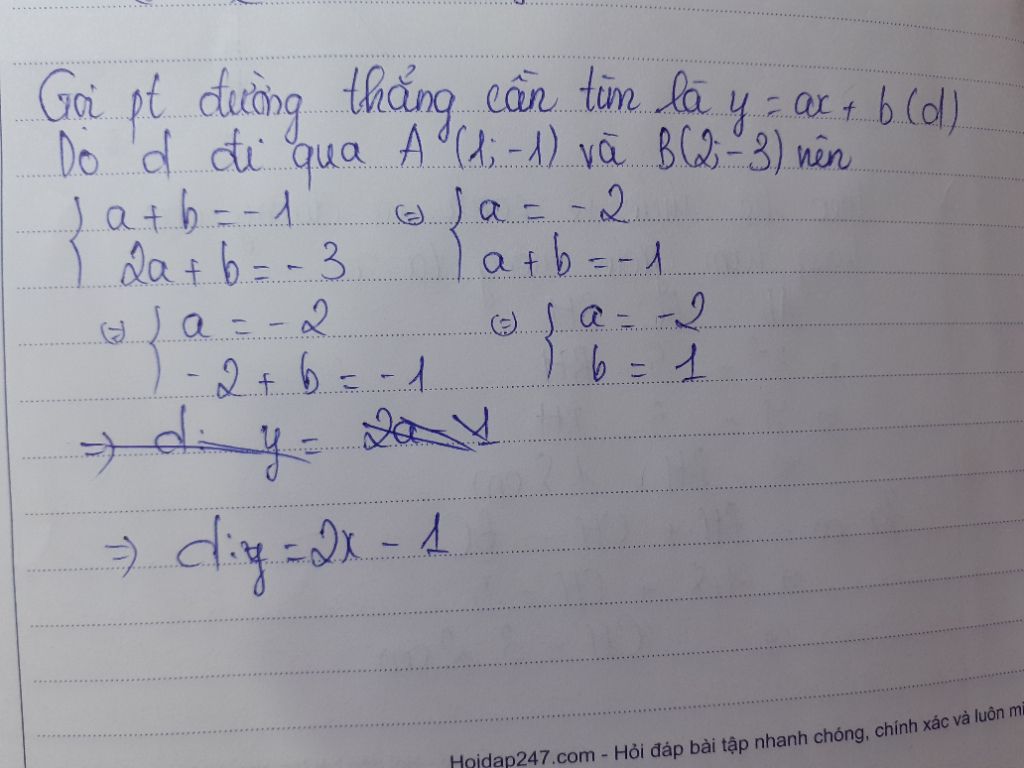 Gọi pt đường thẳng cần tìm là y = ax + b (d)
Do d đi qua A (1; -1) và B(2; -3) nên
{ a + b = -1 (=) { a = -2
2a + b = -3 a + b = -1
(=) { a = -2 (=) { a = -2
-2 + b = -1 b = 1
=> d: y = 2a - 1
=> d: y = 2x - 1
Hoidap247.com - Hỏi đáp bài tập nhanh chóng, chính xác và luôn mi